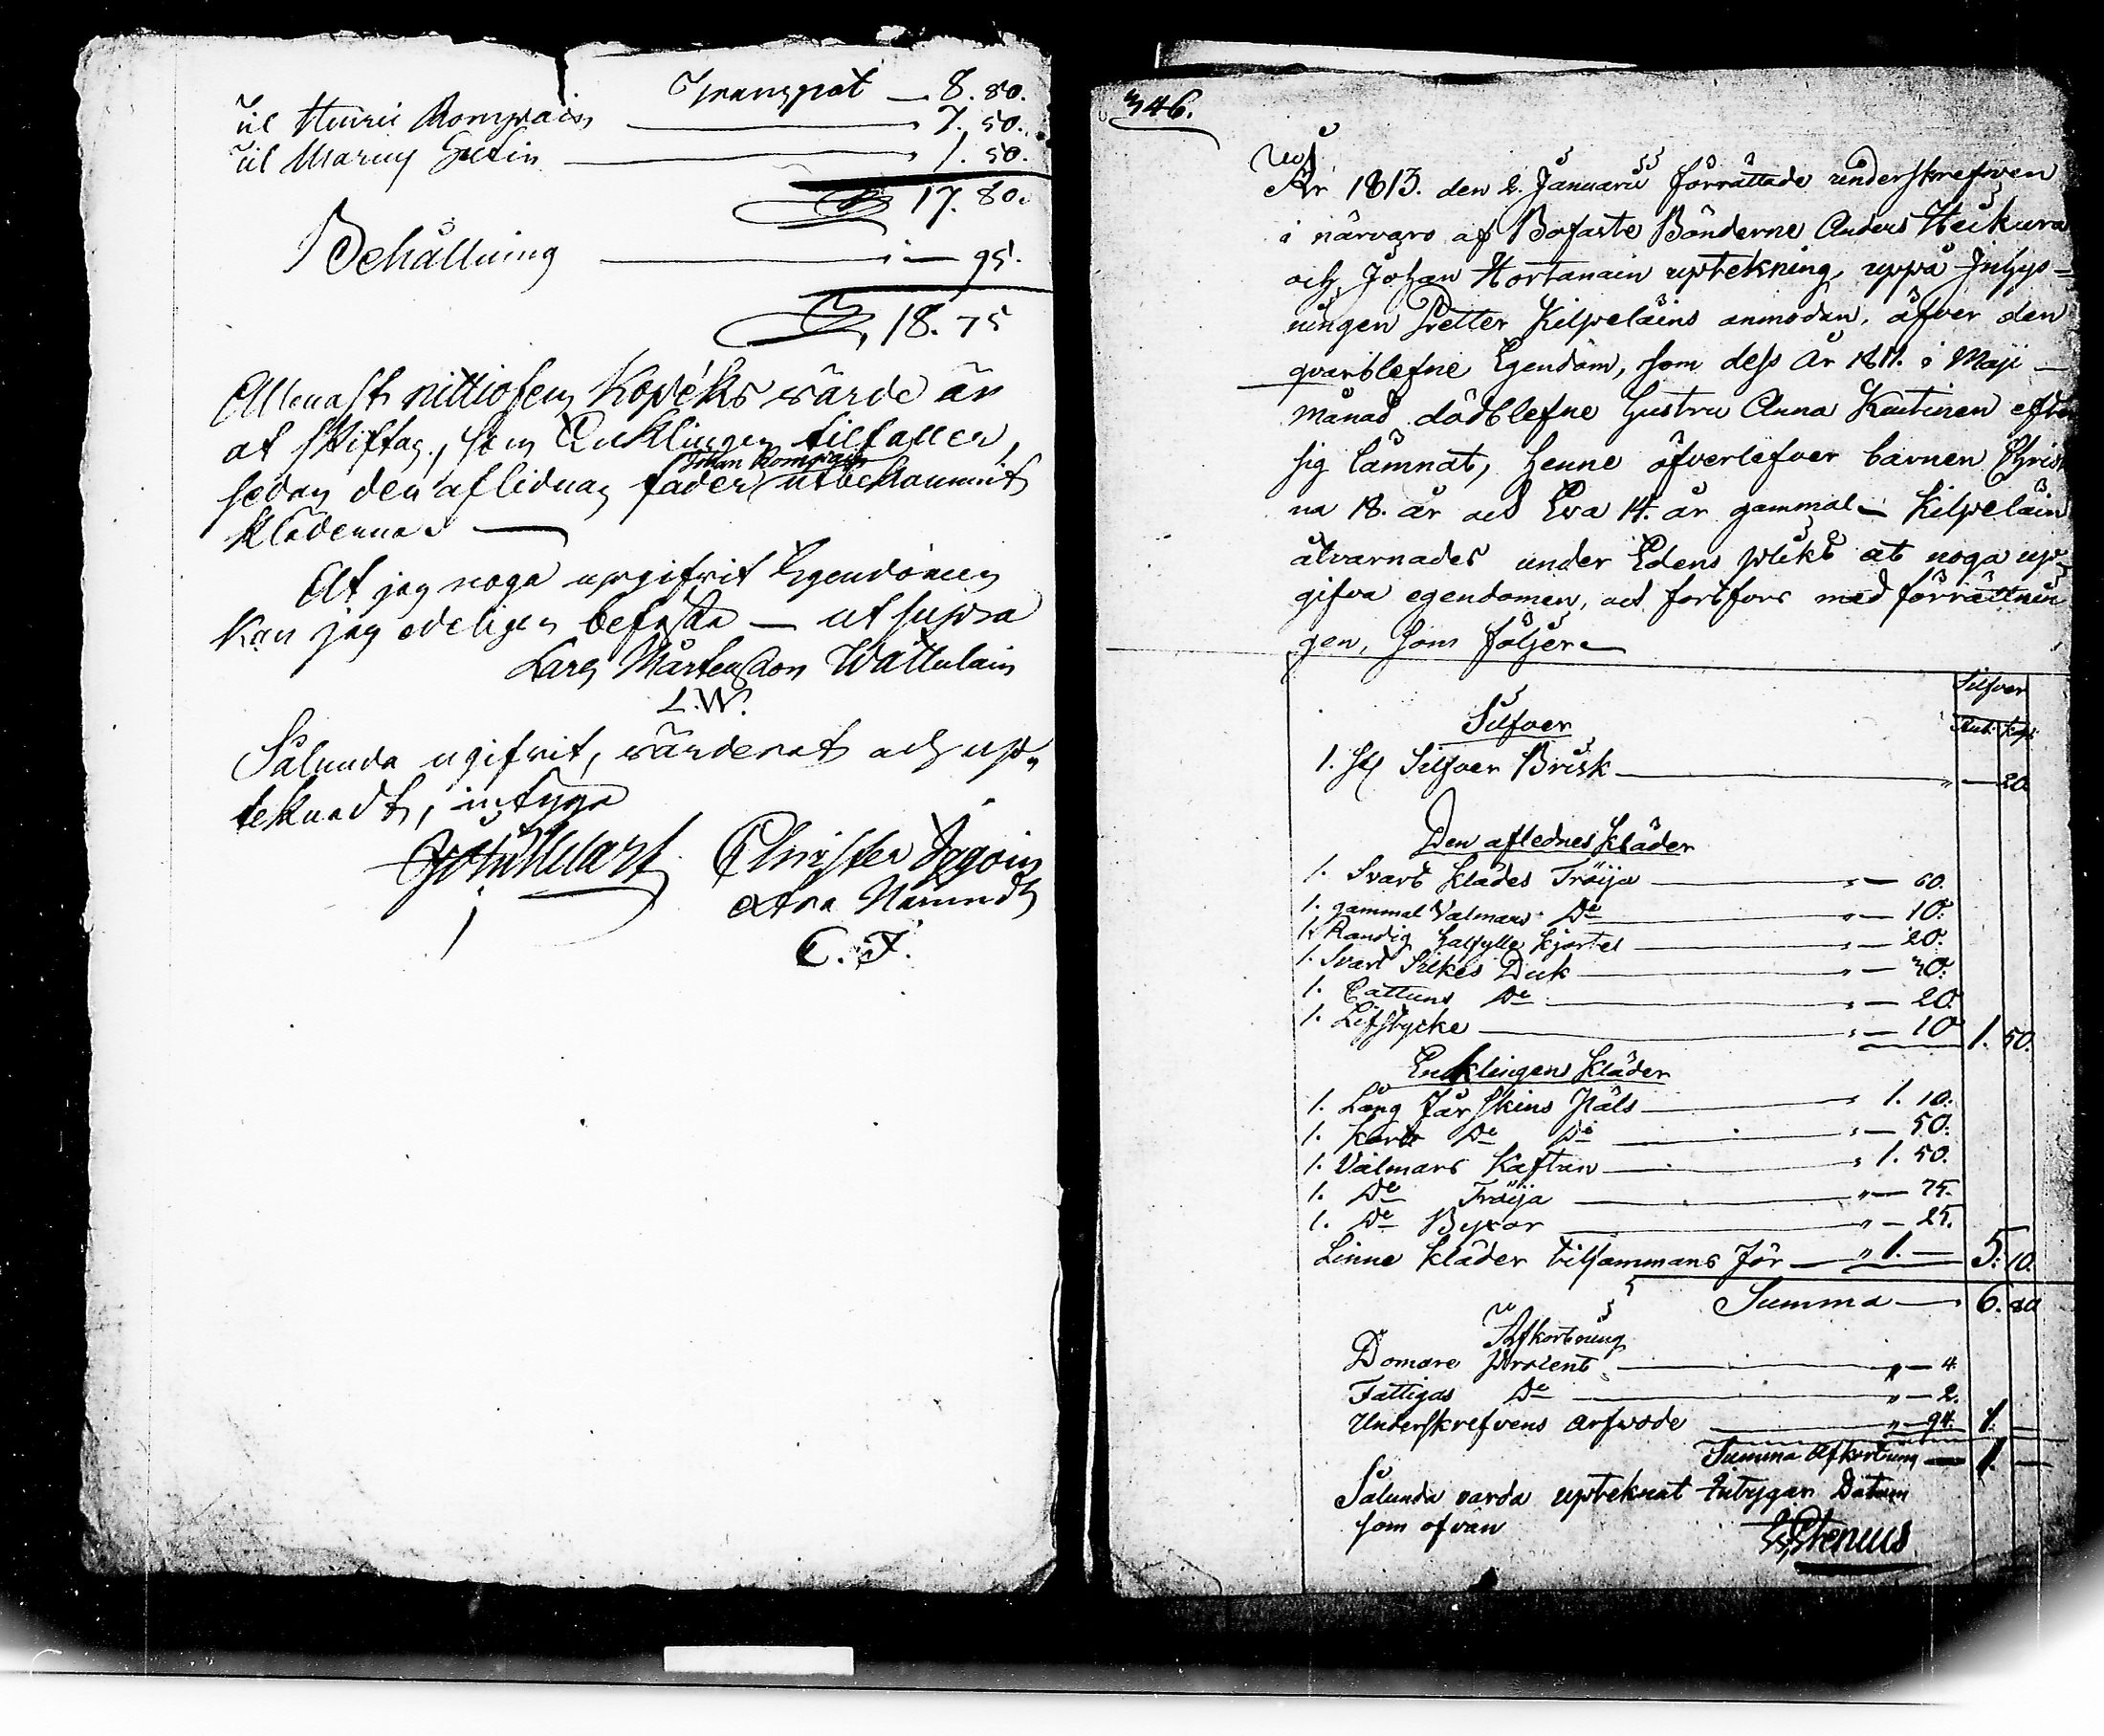 Transport — 8. 80.
til Henric Rompain — 7. 50.
til Marcus Hutin — 1. 50.
17. 80.
Behållning — 95.
18. 75
Allenast nittiofem Kopeks värde är
at skiftas, som Enklingen tilfaller,
sedan den aflidnas fader Johan Rompain utbekommit
kläderna. —
At jag noga upgifvit Egendomen
kan jag edeligen befästa — ut supra
Lars Mårtensson Wattulain
L.W.
Sålunda ugifvit, värderat och up-
teknadt, intyga
Christer Iggoin
Nämndn
C. I.
346.
År 1813. den 2. Januarii förrättade underskrefven
i närvaro af Bofaste Bönderne Anders Heikura
och Johan Hortanain uptekning, uppå Inhys=
ningen Petter Kilpeläins anmodan, öfver den
qvarblefne Egendom, som dess År 1811. i Maji
månad dödblefne hustru Anna Kautinen efter
sig lämnat, henne öfverlefver barnen Christi
na 18. år och Eva 14. år gammal — Kilpeläin
åtvarnades under Edens plikt at noga up-
gifva egendomen, och fortfors med förrättnin
gen, som följer —
Silfver
Rub: Kop:
Silfver
1. st Silfver Brisk — " — 20
Den aflednes kläder
1. Svart Klädes Tröija — " — 60.
1. gammal Valmans Do — " — 10.
1. Randig halfylle kjortel — " — 20.
1. Svart Silkes Duk — " — 30.
1. Cattuns Do — " — 20.
1. Lifstycke — " — 10 1. 50.
Enklingens kläder
1. Lång Fårskins Päls — " 1. 10.
1. kort Do Do — " — 50.
1. Valmars Kaftan — " 1. 50.
1. Do Tröija — " — 75.
1. Do Byxor — " — 25.
Linne kläder tilsammans för — " 1. — 5. 10.
Summa — 6. 80
Afkortning
Domare procent — " — 4.
Fattigas Do — " — 2.
Underskrefvens arfvode — " — 94. 1. —
Summa Afkortning — 1. —
Sålunda varda upteknat intygar Datum
som ofvan
Stenius